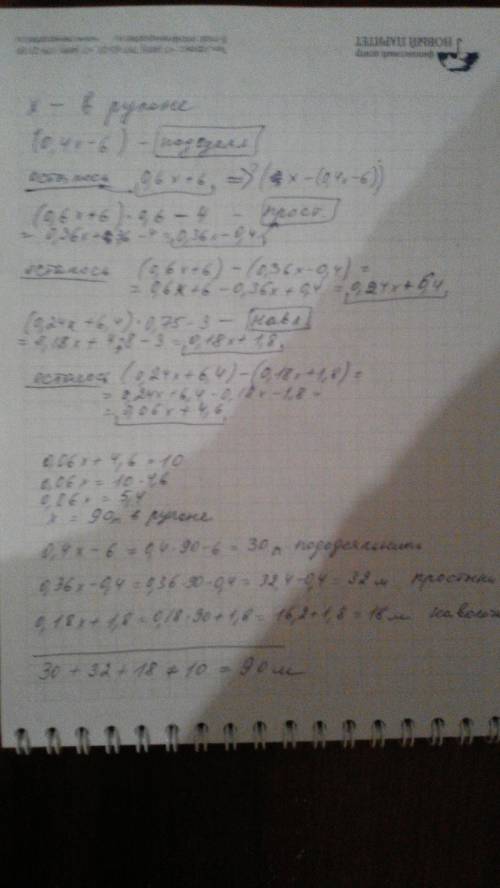 финансовый центр
НОВЫЙ ПАРИТЕТ
x – в рулоне
(0,4x-6) – пододеял
осталось 0,6x+6 => (x-(0,4x-6))
(0,6x+6)·0,6 - 4 – прост.
= 0,36x+3,6 - 4 = 0,36x-0,4
осталось (0,6x+6) - (0,36x-0,4) =
= 0,6x+6 - 0,36x+0,4 = 0,24x+6,4
(0,24x+6,4)·0,75-3 – навл
= 0,18x+4,8-3 = 0,18x+1,8
осталось (0,24x+6,4)-(0,18x+1,8) =
= 0,24x+6,4-0,18x-1,8 =
= 0,06x+4,6
0,06x+4,6=10
0,06x = 10-4,6
0,06x = 5,4
x = 90м в рулоне
0,4x-6 = 0,4·90-6 = 30м пододеяльники
0,36x-0,4 = 0,36·90-0,4 = 32,4-0,4 = 32м простыни
0,18x+1,8 = 0,18·90+1,8 = 16,2+1,8 = 18м наволоч
30+32+18+10 = 90м